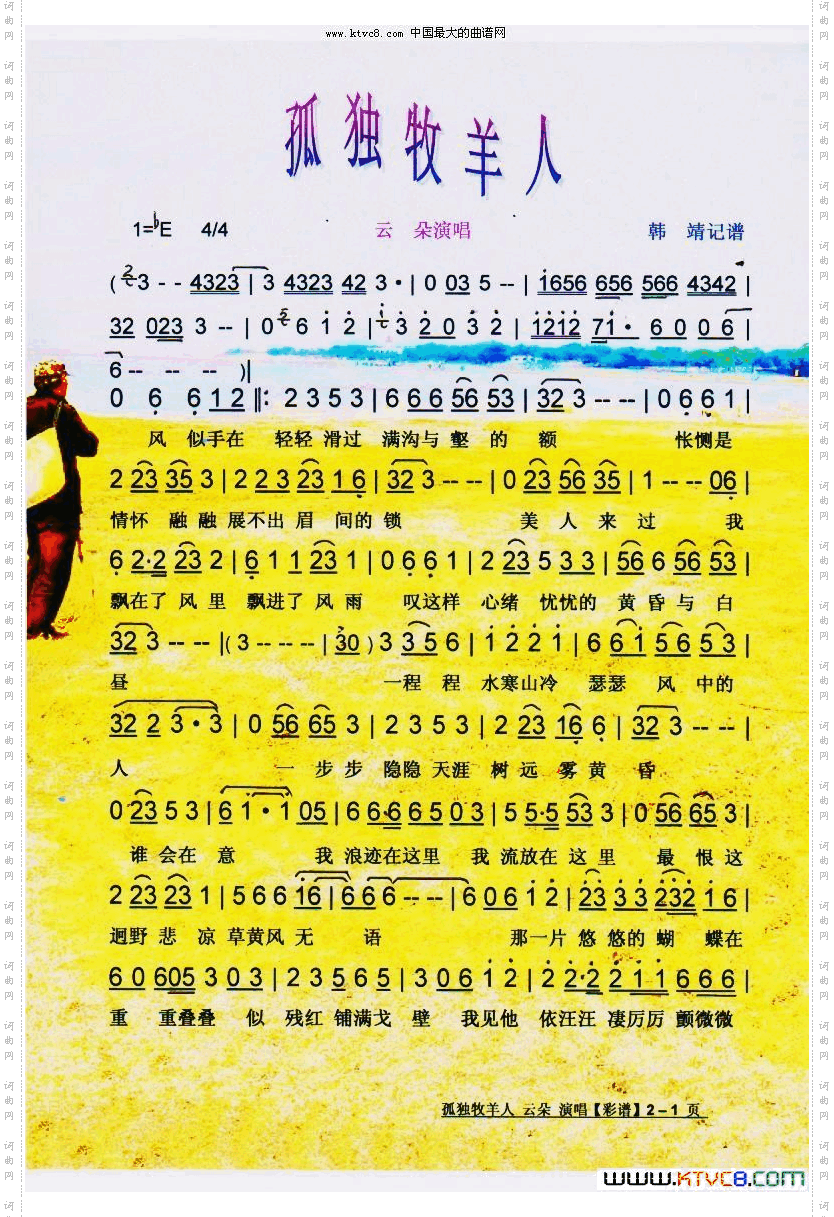 www.ktvc8.com 中国最大的曲谱网
孤独牧羊人
1=♭E 4/4 云 朵演唱 韩 靖记谱
( 3 - - 4323 | 3 4323 42 3 · | 0 03 5 -- | 1656 656 566 4342 |
32 023 3 -- | 0 6 1 2 | 3 2 0 3 2 | 1212 71· 6 0 0 6 |
6 -- -- -- )|
0 6 6 12 ‖: 2 3 5 3 | 6 66 56 53 | 32 3 -- -- | 0 6 6 1 |
风 似手在 轻轻 滑过 满沟与 壑 的 额 怅恻是
2 23 35 3 | 2 2 3 23 1 6 | 32 3 -- -- | 0 23 56 35 | 1 -- -- 06 |
情怀 融融 展不出 眉 间的 锁 美 人 来 过 我
6 2·2 23 2 | 6 1 1 23 1 | 0 6 6 1 | 2 23 5 3 3 | 56 6 56 53 |
飘在了 风 里 飘进了 风 雨 叹这样 心绪 忧忧的 黄 昏 与 白
32 3 -- -- |( 3 -- -- -- | 30 ) 3 3 5 6 | 1 2 2 1 | 6 6 1 5 6 5 3 |
昼 一程 程 水寒山冷 瑟瑟 风 中的
32 2 3 · 3 | 0 56 65 3 | 2 3 5 3 | 2 23 16 6 | 32 3 -- -- |
人 一 步 步 隐隐 天涯 树 远 雾 黄 昏
0 23 5 3 | 6 1 · 1 05 | 6 6 6·6 6 5 0 3 | 5 5·5 53 3 | 0 56 65 3 |
谁 会在 意 我 浪迹在这里 我 流放在 这 里 最 恨 这
2 23 23 1 | 5 6 6 16 | 6 6 6 -- -- | 6 0 6 1 2 | 23 3 3 232 1 6 |
迥野 悲 凉 草黄风 无 语 那一片 悠 悠的 蝴 蝶在
6 0 605 3 0 3 | 2 3 5 6 5 | 3 0 6 1 2 | 2 2·2 2 1 1 6 6 6 |
重 重叠叠 似 残红 铺满戈 壁 我见他 依汪汪 凄厉厉 颤微微
孤独牧羊人 云朵 演唱【彩谱】2－1 页
www.KTVC8.com